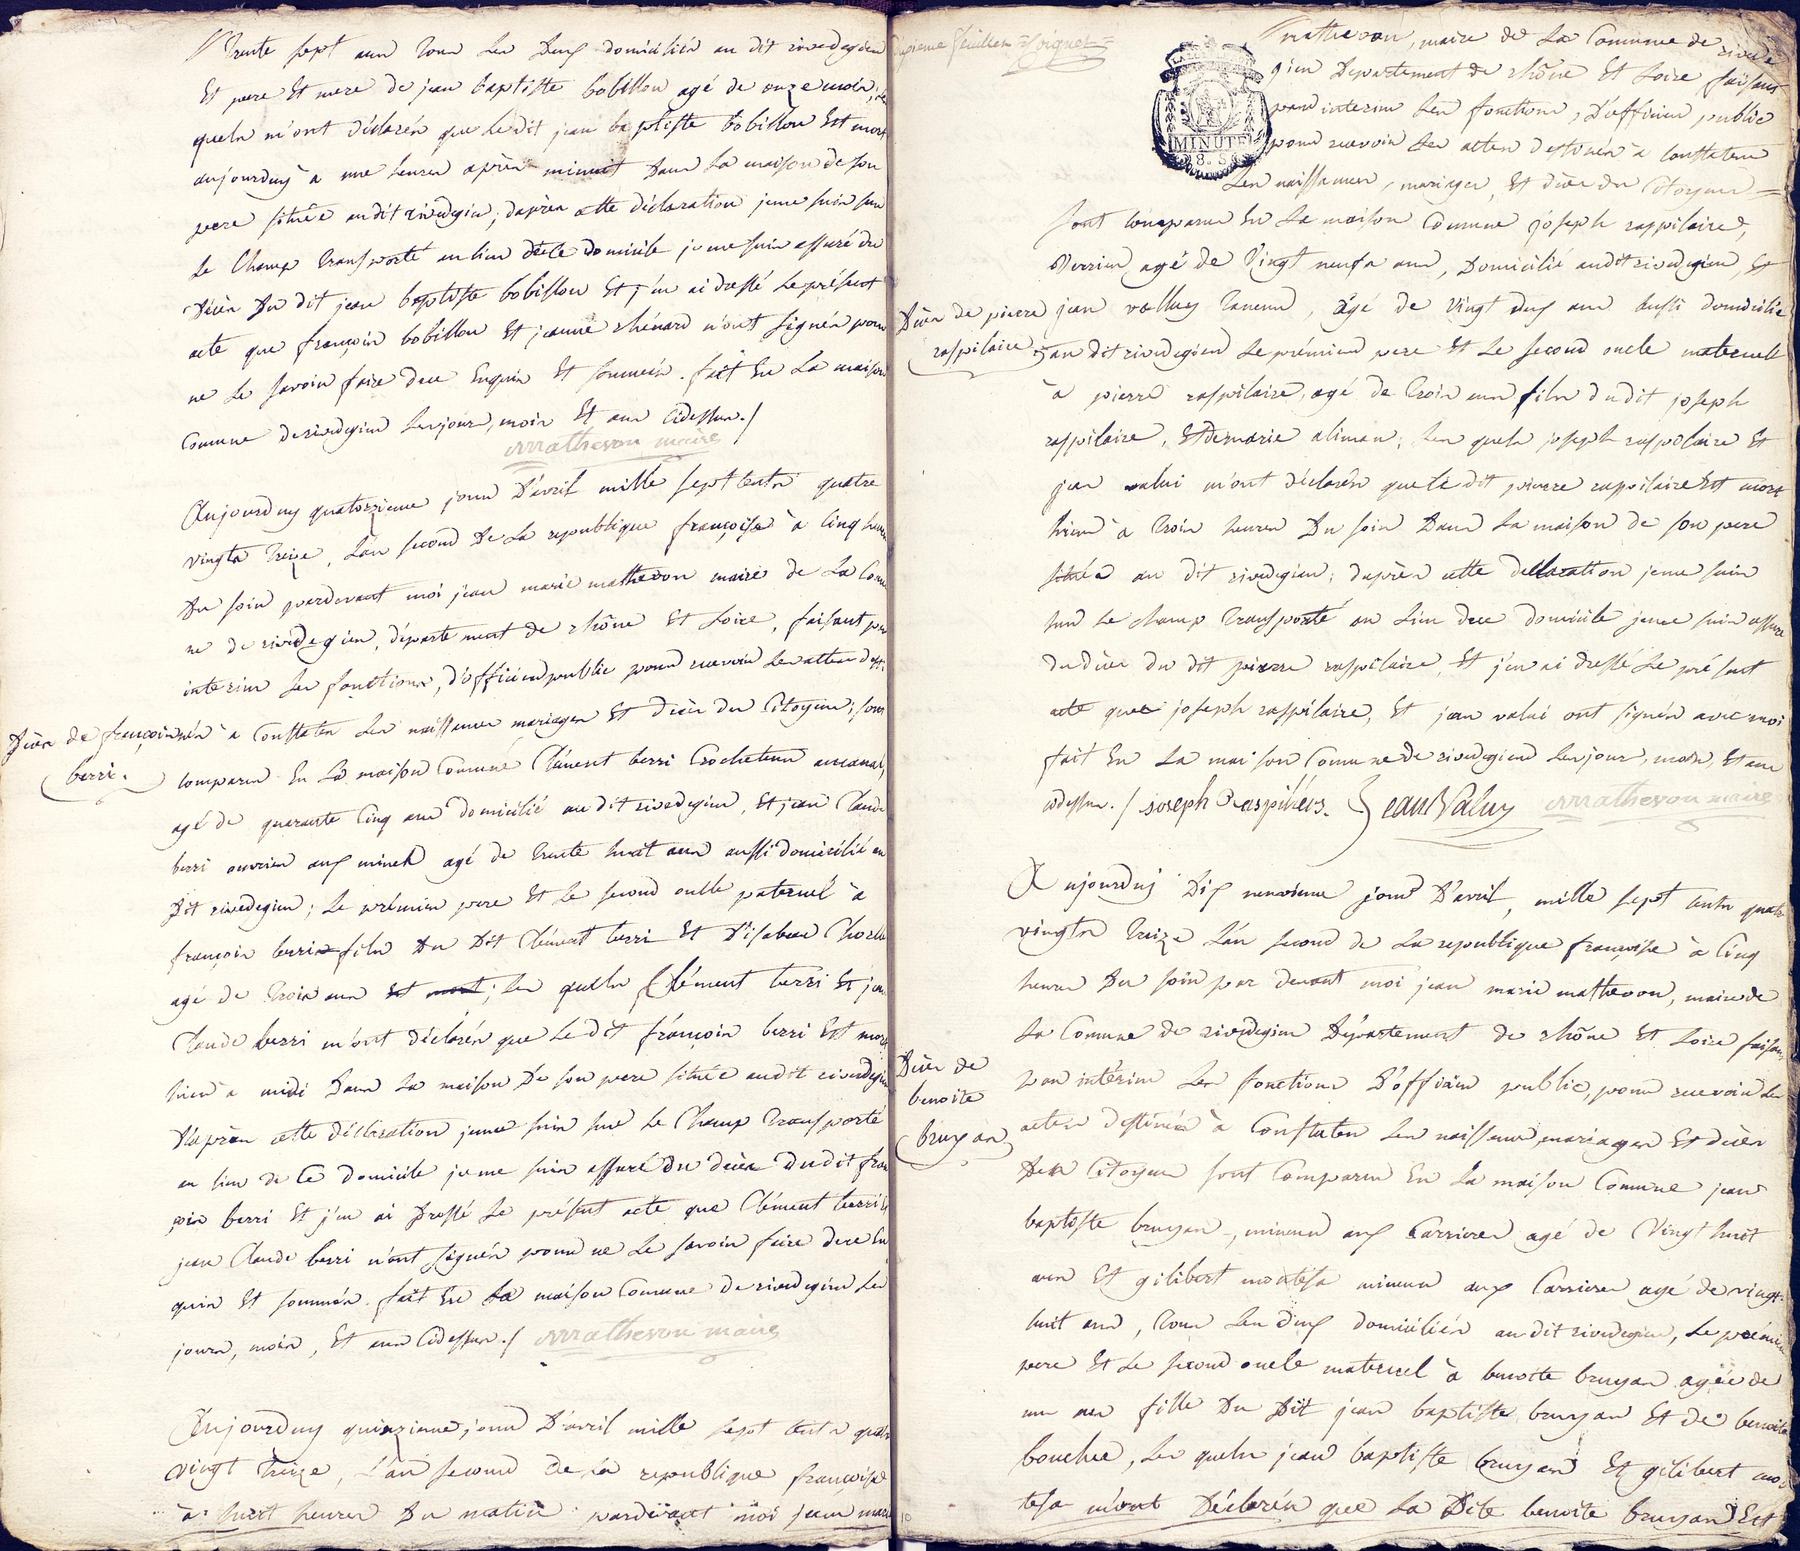 Trente sept ans Tous Les Deux domiciliés au dit rivedegier
Et pere Et mere de jean baptiste bobillon agé de onze mois, les
quels m'ont déclarés que le dit jean baptiste bobillon Est mort
aujourduy à une heures après minuit Dans La maison de son
pere située audit rivedegier; daprès cette déclaration jeme suis sur
Le Champ Transporté au lieu de ce domicile je me suis assuré du
Décès Du dit jean baptiste bobillon Et j'en ai dressé Le présent
acte que françois bobillon Et jeanne chénard n'ont signés pour
ne Le savoir faire dece Enquis Et sommés. fait En La maison
Comune de rivedegier Les jour, mois Et an Cidessus ./
Matthevon maire
Aujourduy quatorzieme jour D'avril mille sept cents quatre
vingts Treize, L'an second De La republique françoise à Cinq heures
Du soir pardevant moi jean marie matthevon maire de La Comu
ne de rivedegier, département de rhône Et Loire, faisant par
interim Les fonctions, d'officier public pour recevoir Les actes desti
Décès de françois
berri.
nés à Constater Les naissances mariages Et décès des Citoyens; sont
comparus En La maison Comune Clément berri Crocheteur au canal,
agé de quarante Cinq ans domicilié au dit rivedegier, Et jean Claude
berri ouvrier aux mines agé de Trente huit ans aussi domicilié au
Dit rivedegier; Le prémier pere Et Le second oncle paternel à
françois berri fils Du Dit Clément berri Et D'isabeau
agé de Trois ans Et mort; Les quels Clément berri Et jean
Claude berri m'ont déclarés que Le dit françois berri Est mort
hier à midi Dans La maison De son pere située audit rivedegier
D'après cette déclaration jeme suis sur Le Champ Transporté
au lieu de Ce domicile je me suis assuré Du Décès Dudit fran
çois berri Et j'en ai Dressé Le présent acte que Clément berri Et
jean Claude berri n'ont signés pour ne Le savoir faire dece En
quis Et sommés. fait En La maison Comune De rivedegier Les
jours, mois, Et ans Cidessus ./ Matthevon maire
Aujourduy quinzieme jour D'avril mille sept cents quatre
vingt Treize, L'an second De La republique françoise
à huit heures Du matin pardevant moi jean marie
feuillet
matthevon, maire de La Comune de rivede
gier Département de rhône Et Loire faisant
MINUTE
8. S.
par interim Les fonctions, D'officier public
pour recevoir Les actes destinés à Constater
Les naissances, mariages, Et décès des Citoyens
sont comparus En La maison Comune joseph raspilaire,
Verrier agé de Vingt neufs ans, Domicilié audit rivedegier, Et
Décès de pierre
raspilaire
jean valluy Taneur, agé de vingt Dux ans aussi domicilié
au dit rivedegier Le prémier pere Et Le second oncle maternele
à pierre raspilaire, agé de Trois ans fils dudit joseph
raspilaire, Et de marie aliman, Les quels joseph raspilaire Et
jean valui m'ont déclarés que Le dit pierre raspilaire Est mort
hier à Trois heures Du soir Dans La maison de son pere
située au dit rivedegier; daprès cette declaration jeme suis
sur Le Champ Transporté au Lieu dece domicile jeme suis assure
du Décès du dit pierre raspilaire, Et j'en ai dressé Le présent
acte que joseph raspilaire, Et jean valui ont signés avec moi
fait En La maison Comune de rivedegier Les jour, mois, Et ans
cidessus ./ joseph Raspilers. jean Valuy Matthevon maire
Aujourduj Dix neuvieme jour D'avril, mille sept cents quatre
vingts Treize L'an second de La republique françoise à Cinq
heures Du soir par devant moi jean marie matthevon, maire de
La Comune de rivedegier Département de rhône Et Loire faisant
Décès de
benoite
bruyan
par intérim Les fonctions D'officier public, pour recevoir Les
actes destinés à Constater Les naissances, mariages Et décès
Des Citoyens sont Comparus En La maison Comune jean
baptiste bruyan, mineur aux Carrieres agé de Vingt huit
ans Et gilibert montésa mineur aux Carrieres agé de vingt
huit ans, Tous Les Dux domiciliés au dit rivedegier, Le prémier
pere Et Le second oncle maternel à benoite bruyan agée de
un an fille Du Dit jean baptiste bruyan Et de benoite
bouchu, Les quels jean baptiste bruyan Et gilibert mon
tesa m'ont Déclarés que La Dite benoite bruyan Est